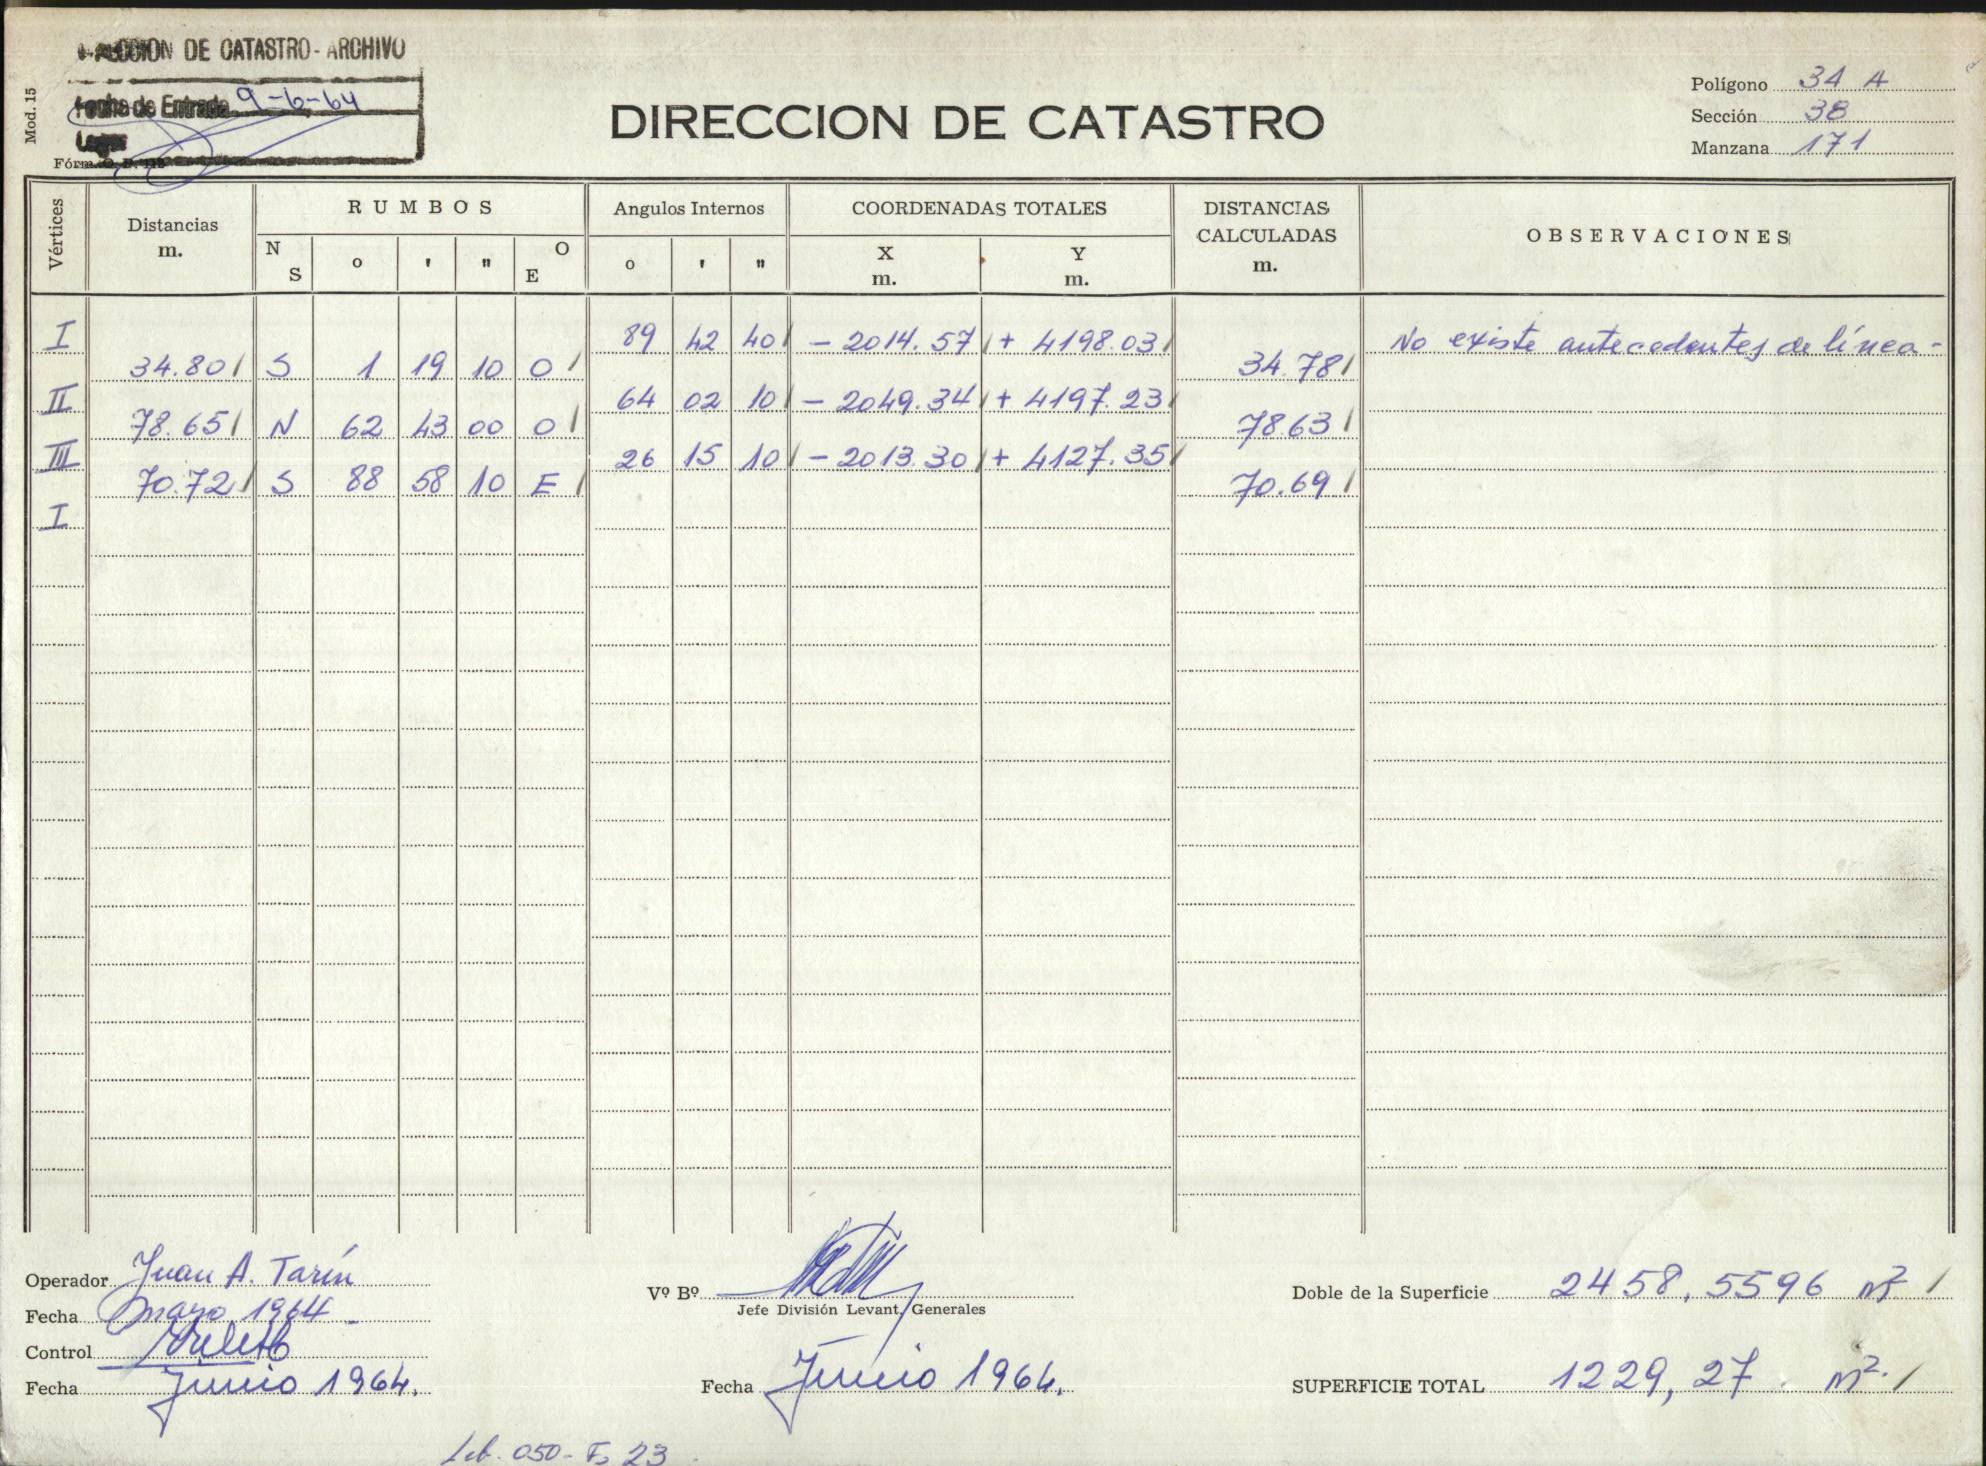 DE CATASTRO - ARCHIVO
Fecha de Entrada 9-6-64
Legajo
Mod. 15
Fórm. O. P. 112
DIRECCION DE CATASTRO
Polígono 34 A
Sección 38
Manzana 171
Vértices Distancias m. RUMBOS Angulos Internos COORDENADAS TOTALES DISTANCIAS CALCULADAS m. OBSERVACIONES
N S o ' " O E o ' " X m. Y m.
I 89 42 40 - 2014.57 + 4198.03 No existe antecedentes de línea -
34.80 S 1 19 10 O 34.78
II 64 02 10 - 2049.34 + 4197.23
78.65 N 62 43 00 O 78.63
III 26 15 10 - 2013.30 + 4127.35
70.72 S 88 58 10 E 70.69
I
Operador Juan A. Tarín
Fecha mayo 1964
Control
Fecha Junio 1964.
Vº Bº
Jefe División Levant. Generales
Fecha Junio 1964.
Doble de la Superficie 2458,5596 m²
SUPERFICIE TOTAL 1229,27 m²
Lib. 050 - Fs 23